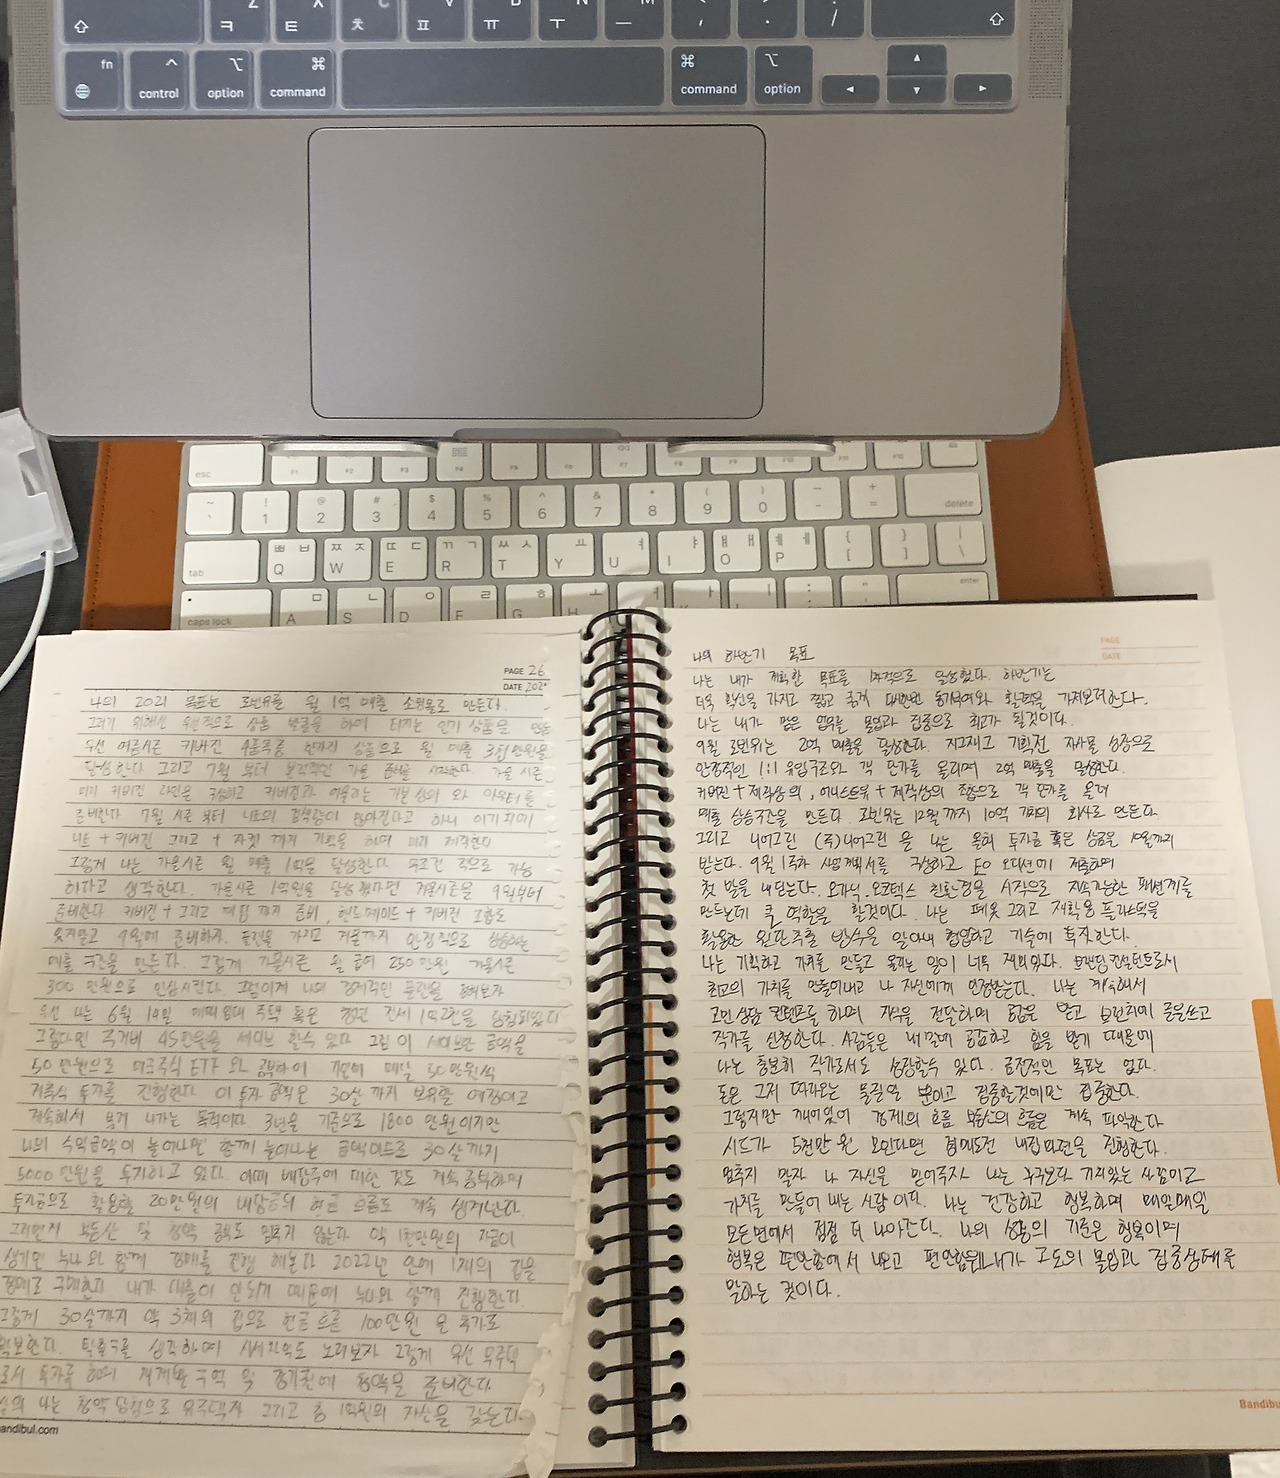 fn control option command command option
esc F1 F2 F3 F4 F5 F6 F7 F8 F9 F10
1 2 3 4 5 6 7 8 9 0 delete
tab Q W E R T Y U I O P
caps lock A S D F G H
enter
PAGE 26
DATE 202
나의 2021 목표는 로번유를 월 1억 매출 쇼핑몰로 만든다.
그러기 위해선 우선적으로 상품 발굴을 하여 터지는 인기상품을 만든
우선 여름시즌 커버진 4품목중 한가지 상품으로 월 매출 3천만원을
달성한다 그리고 7월 부터 본격적인 가을 준비를 시작한다 가을 시즌
미리 커버진 라인을 구성하고 커버진과 어울리는 기본 상의 와 아우터를
준비한다 7월 시즌 부터 니트의 검색량이 많아진다고 하니
니트 + 커버진 그리고 + 자켓 까지 기획을 하여 미리 제작한다
그렇게 나는 가을시즌 월 매출 1억을 달성한다. 무조건 적으로 가능
하다고 생각한다. 가을시즌 1억원을 달성했다면 겨울시즌을 9월부터
준비한다 커버진 + 그리고 패딩 까지 준비, 핸드메이드 + 커버진 조합도
잊지말고 9월에 준비하자. 통일을 가지고 겨울까지 안정적으로 상승하는
매출 구간을 만든다. 그렇게 가을시즌 월 급여 250만원 겨울시즌
300 만원으로 인상시킨다 그럼이제 나의 경제적인 부분을 정해보자
우선 나는 6월 14일 매매임대 주택 혹은 청년 전세 1억2천을 당첨되었다
그렇다면 주거비 45만원을 세이브 할수 있다 그럼 이 세이브한 금액을
50 만원으로 미국주식 ETF 와 공부하여 기업에 매월 50만원씩
저축식 투자를 진행한다 이 투자 금액은 30살 까지 보유할 예정이고
계속해서 불려 나가는 목적이다 3년을 기준으로 1800 만원이지만
나의 수익금액이 늘어나면 함께 늘어나는 금액이므로 30살 까지
5000만원을 투자하고 있다. 이때 배당주에 대한 것도 계속 공부하며
투자금으로 활용할 20만원의 배당금의 현금 흐름도 계속 생겨난다.
그러면서 부동산 및 청약 공부도 멈추지 않는다 약 1천만원의 자금이
생기면 누나와 함께 경매를 진행 해본다 2022년 안에 1채의 집을
경매로 구매한다 내가 대출이 안되기 때문에 누나와 함께 진행한다.
그렇게 30살까지 약 3채의 집으로 현금흐름 100만원 을 추가로
확보한다. 틱톡크를 생각하며 시세차익도 노려보자 그렇게 우선 무주택
로서 투자를 하며 재개발 구역 및 경기권에 청약을 준비한다
살의 나는 청약 당첨으로 유주택자 그리고 총 1억원의 자산을 갖는다.
andibul.com
PAGE
DATE
나의 하반기 목표
나는 내가 계획한 목표를 1차적으로 달성했다. 하반기는
더욱 확신을 가지고 짧고 굵게 대한민 동기부여와 활력을 가져보려한다.
나는 내가 맡은 업무를 몰입과 집중으로 최고가 될것이다.
9월 로번위는 2억 매출을 달성한다. 지그재그 기획전 자사몰 성장으로
안정적인 1:1 유입구조와 객 단가를 올리며 2억 매출을 달성한다.
커버진 + 제작상의, 어니스트유 + 제작상의 조합으로 객 단가를 올려
매출 상승구간을 만든다. 로번유는 12월 까지 10억 가치의 회사로 만든다.
그리고 나어그린 (주)나어그린 을 나는 올해 투자금 혹은 상금을 10월까지
받는다. 9월 1주차 사업계획서를 구성하고 EO 오디션에 제출하며
첫 발을 내딛는다. 오가닉, 오코텍스 친환경을 시작으로 지속가능한 패션계를
만드는데 큰 역할을 할것이다. 나는 폐옷 그리고 재활용 플라스틱을
활용한 원단추출 방식을 알아내 협업하고 기술에 투자한다.
나는 기획하고 가치를 만들고 올리는 일이 너무 재미있다. 브랜딩 컨설턴트로서
최고의 가치를 만들어내고 나 자신에게 인정받는다. 나는 계속해서
고민상담 컨텐츠를 하며 지식을 전달하며 힘을 받고 브런치에 글을쓰고
작가를 신청한다. 사람들은 내 글에 공감하고 힘을 받기 때문에
나는 충분히 작가로서도 성장할수 있다. 금전적인 목표는 없다.
돈은 그저 따라오는 물질일 뿐이고 집중한것에만 집중한다.
그렇지만 깨어있어 경제의 흐름 부동산의 흐름은 계속 파악한다
시드가 5천만 원 모인다면 경매도전 내집마련을 진행한다.
멈추지 말자 나 자신을 믿어주자 나는 누구보다 가치있는 사람이고
가치를 만들어 내는 사람 이다. 나는 건강하고 행복하며 매일매일
모든면에서 점점 더 나아간다. 나의 삶의 기준은 행복이며
행복은 편안함에서 나오고 편안함은 내가 고도의 몰입과 집중상태를
말하는 것이다.
Bandibu